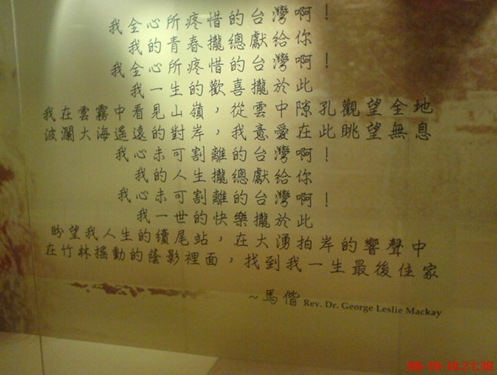 我全心所疼惜的台灣啊！
我的青春攏總獻給你
我全心所疼惜的台灣啊！
我一生的歡喜攏於此
我在雲霧中看見山嶺，從雲中隙孔觀望全地
波瀾大海遙遠的對岸，我意愛在此眺望無息
我心未可割離的台灣啊！
我的人生攏總獻給你
我心未可割離的台灣啊！
我一世的快樂攏於此
盼望我人生的續尾站，在大湧拍岸的響聲中
在竹林搖動的蔭影裡面，找到我一生最後住家
~馬偕 Rev. Dr. George Leslie Mackay